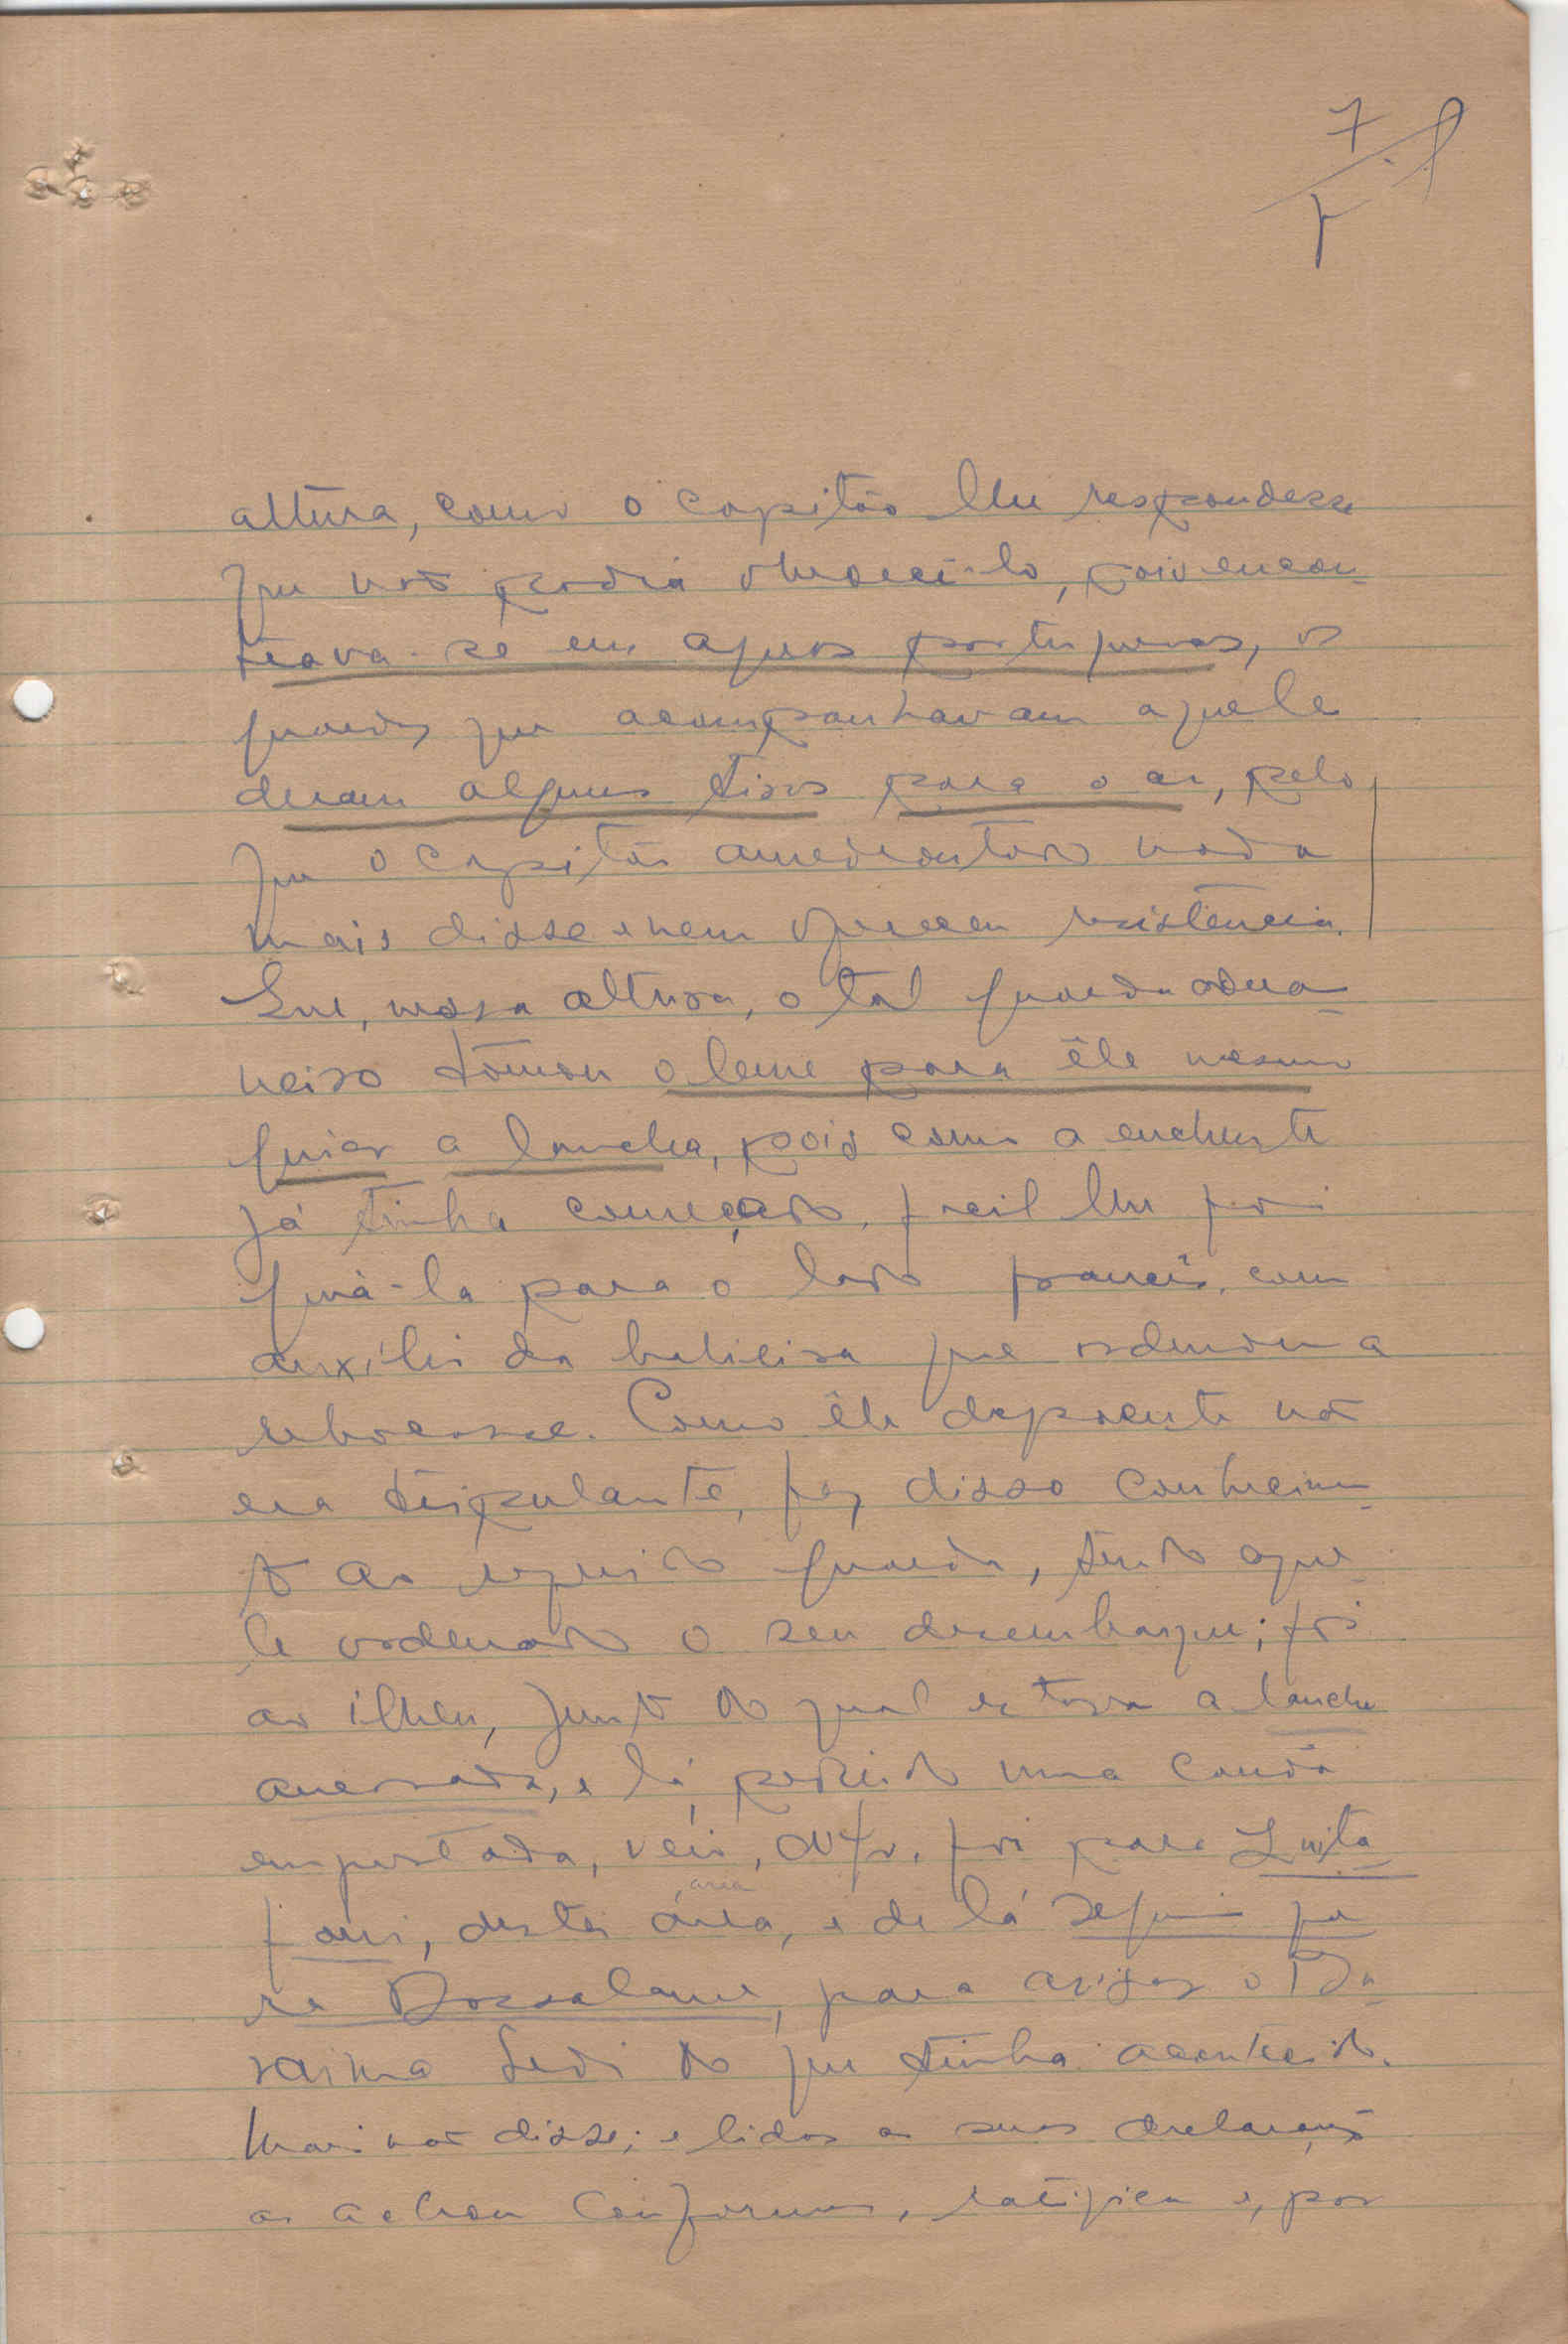 7
altura, como o capitão lhe respondesse
que não podia obedecê-lo, pois encon-
trava-se em aguas portuguesas, os
guardas que acompanhavam aquele
deram alguns tiros para o ar, pelo
que o capitão amedrontado nada
mais disse e nem ofereceu resistência.
Que, nessa altura, o tal guarda adua-
neiro tomou o leme para êle mesmo
guiar a lancha, pois como a enchente
já tinha começado, facil lhe foi
guiá-la para o lado francês, com
auxílio da baleeira que ordenou a
rebocasse. Como êle depoente não
era tripulante, fez disso conhecimen-
to ao referido guarda, tendo aque-
le ordenado o seu desembarque; foi
ao ilheu, junto do qual estava a lancha
e lá, pedindo uma canôa
emprestada, veio,
area
desta área, e de lá seguiu pa
ra para avisar o
Sedi do que tinha acontecido.
Mais não disse; e lidas as suas declarações
as achou conformes, ratifica e, por